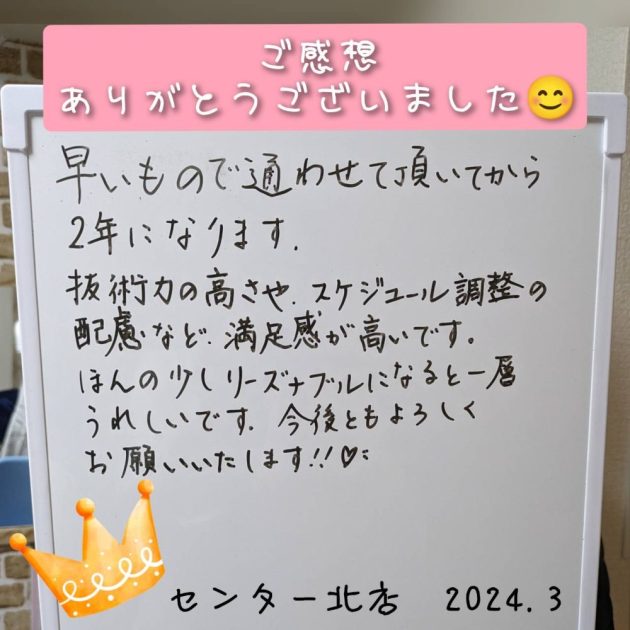 ご感想
ありがとうございました😊
早いもので通わせて頂いてから
2年になります.
技術力の高さや、スケジュール調整の
配慮など、満足感が高いです。
ほんの少しリーズナブルになると一層
うれしいです. 今後ともよろしく
お願いいたします!!♡
センター北店 2024.3